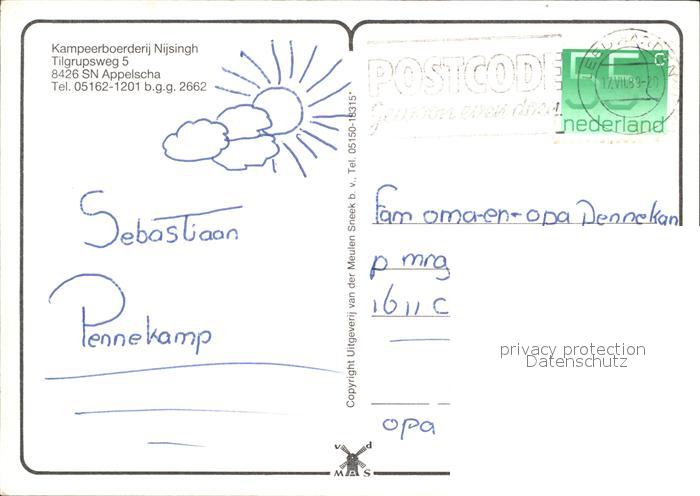 Kampeerboerderij Nijsingh
Tilgrupsweg 5
8426 SN Appelscha
Tel. 05162-1201 b.g.g. 2662
Sebastiaan
Pennekamp
Copyright Uitgeverij van der Meulen Sneek b. v., Tel. 05150-18315*
POSTCODE
gewoon even doen
55 c
nederland
LEEUWARDEN
17.VII.89-20
Fam oma-en-opa Pennekam
p mrg
1611 C
opa
privacy protection
Datenschutz
v d
MAS